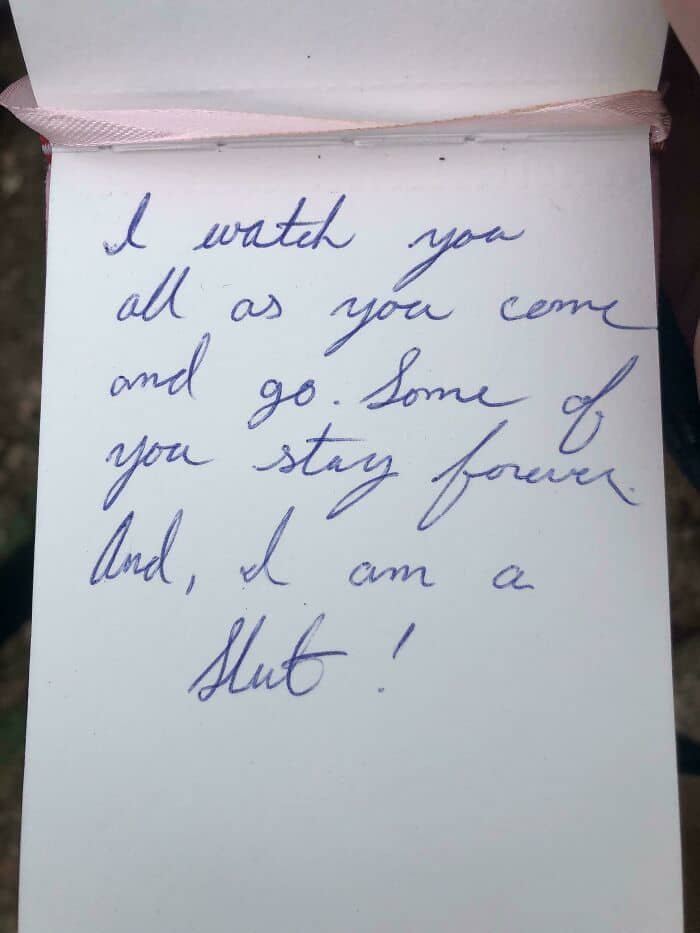 I watch you
all as you come
and go. Some of
you stay forever.
And, I am a
Slut!